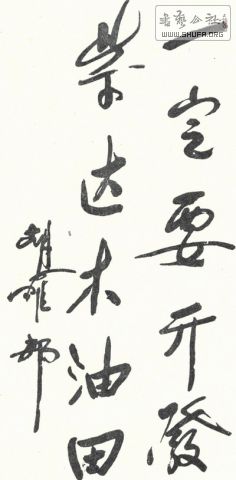 一定要开發
柴达木油田
胡耀邦
书艺公社
WWW.SHUFA.ORG